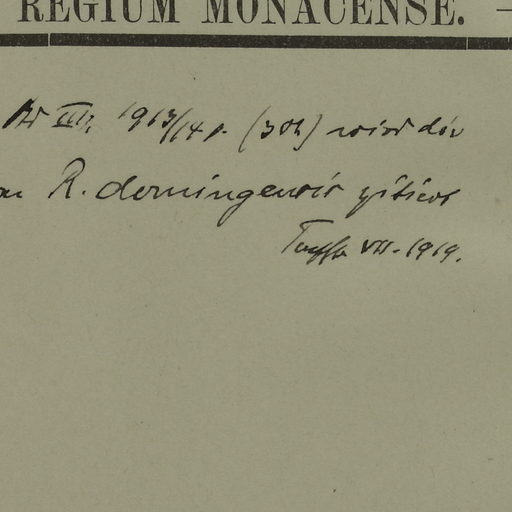 REGIUM MONACENSE. —
III. 1913/14 p. (301) wird die
R. domingensis zitiert
VII. 1919.